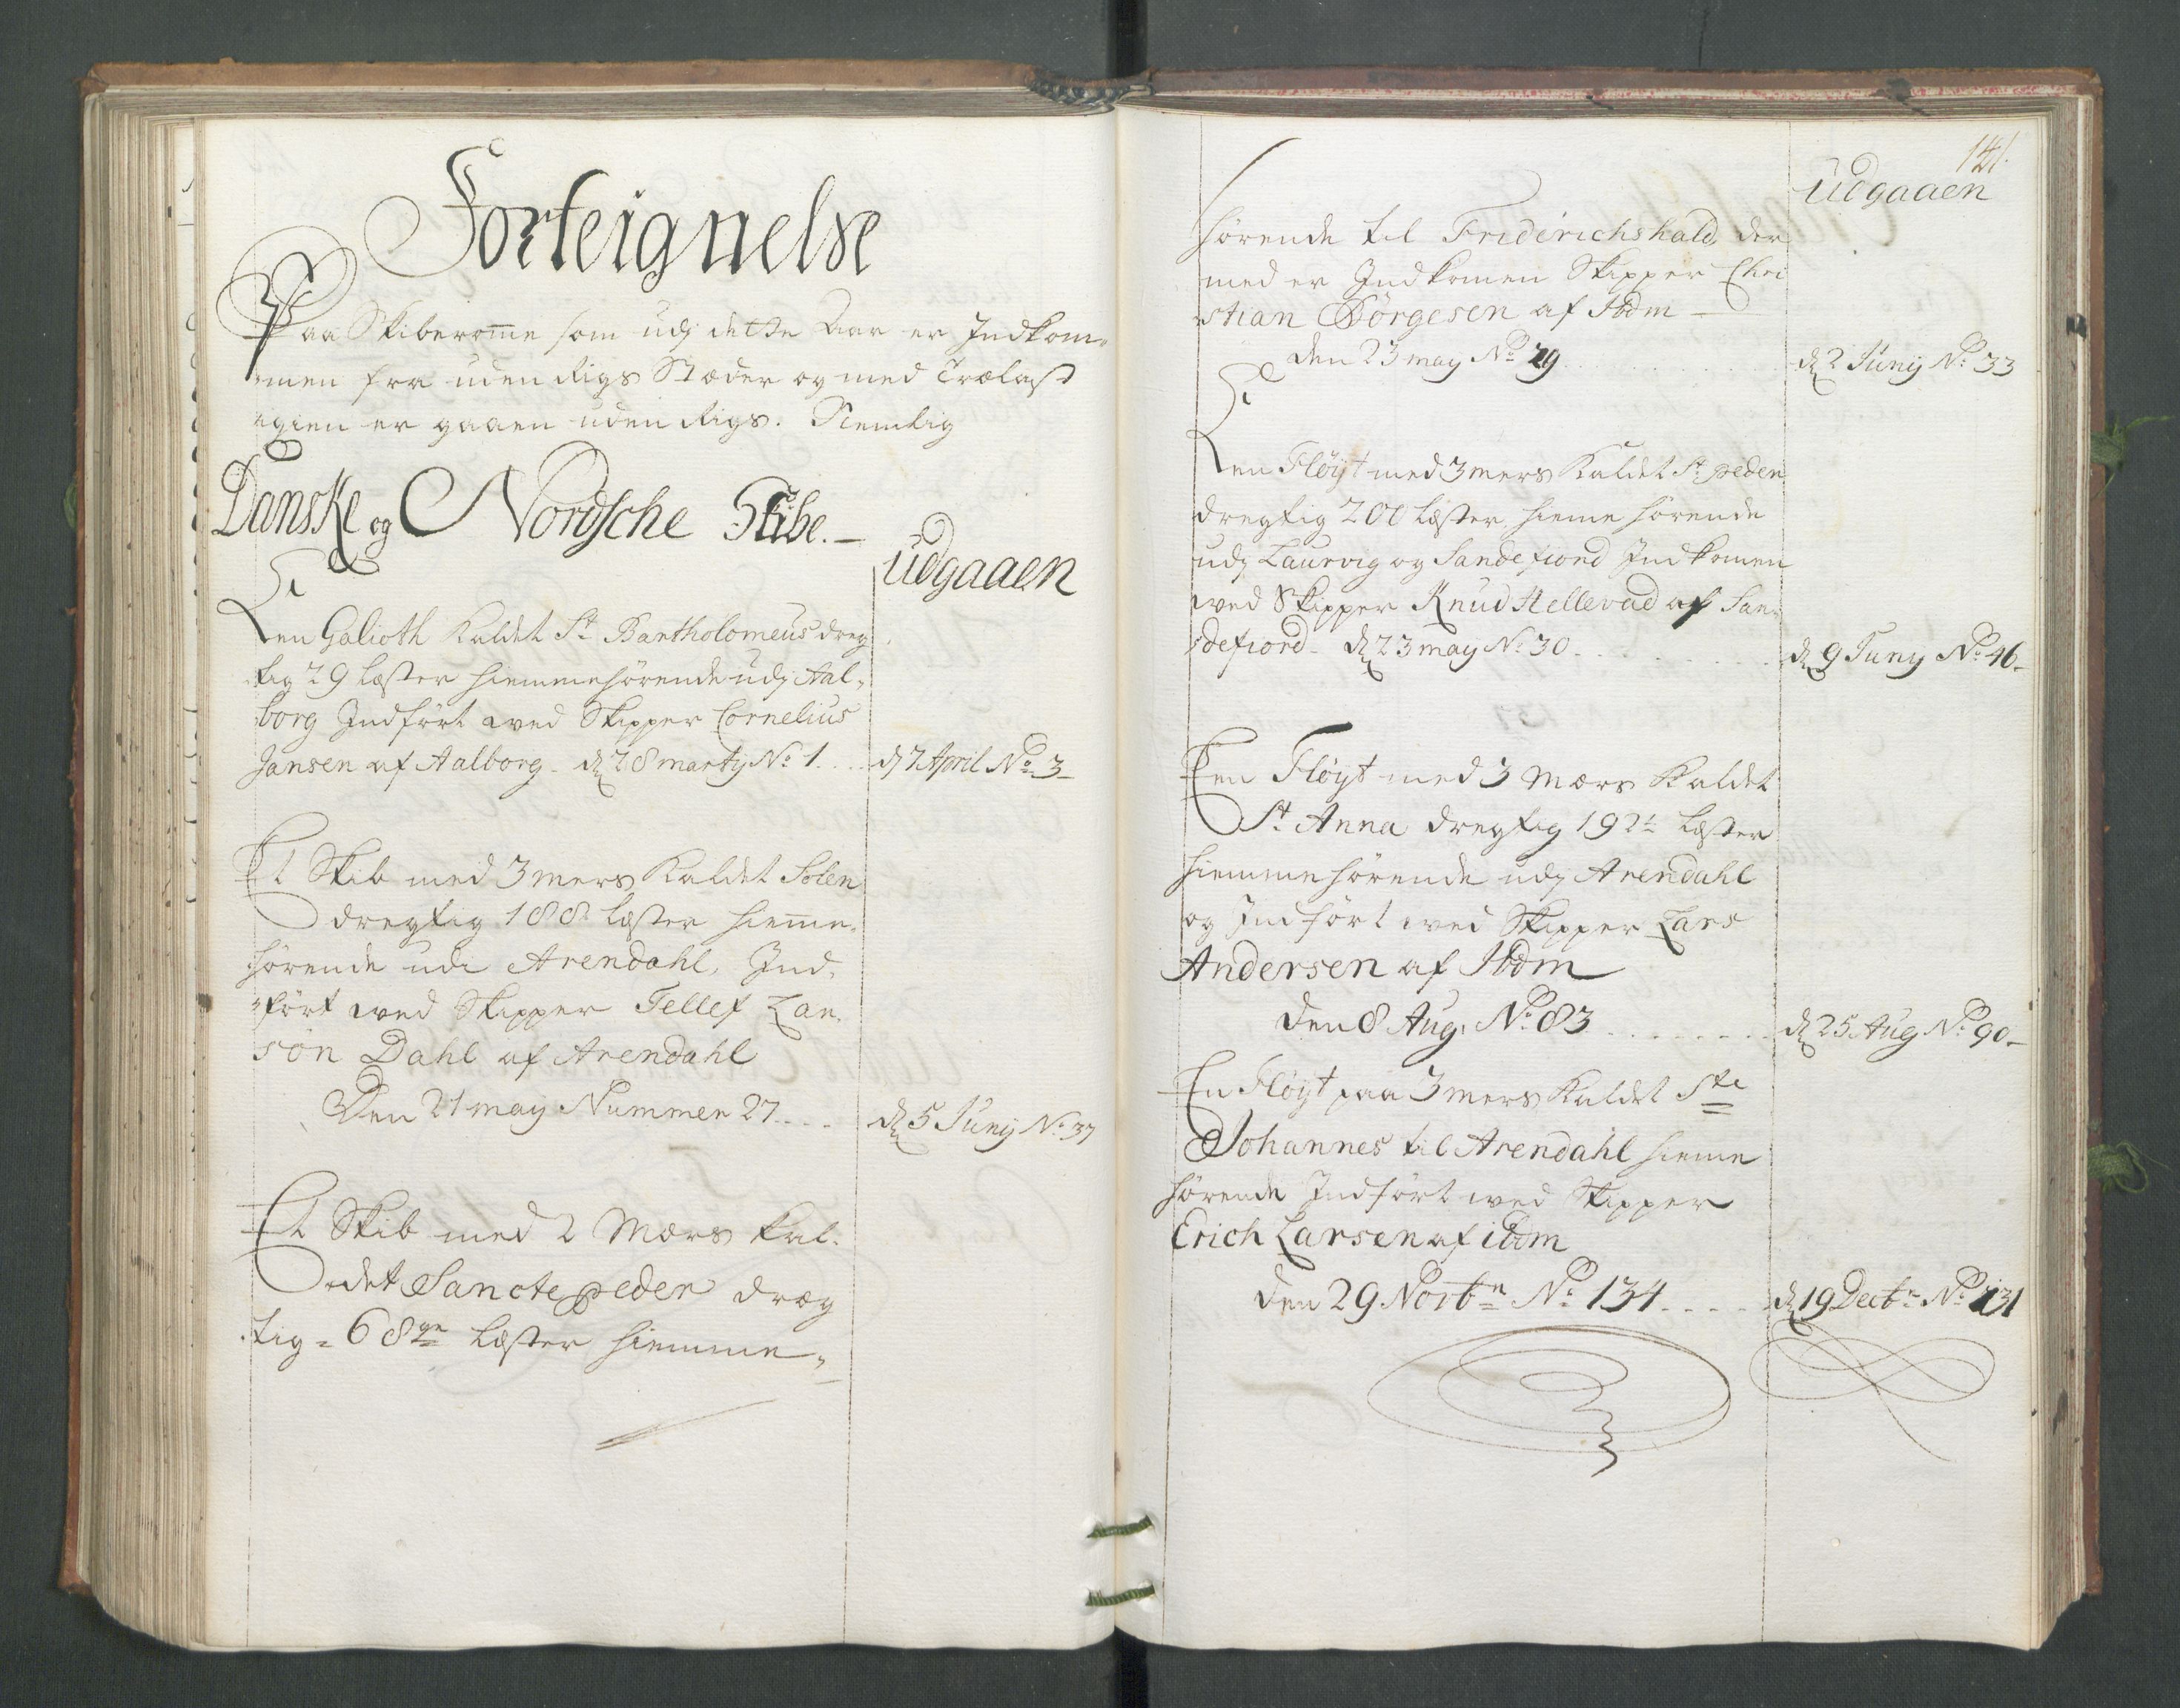 Forteignelse
Paa Skiberome som udj dette Aar er Indkom-
men fra uden Rigs Stæder og med Trælast
igien er gaaen uden Rigs. Nemlig
Danske og Nordsche Skibe.
udgaaen
Een Galioth Kaldet St Bartholomeus dreg
tig 29 læster hiemmehørende udj Aal-
borg Indført wed Skipper Cornelius
Jansen af Aalborg d 28 marty No 1 .... d 7 April No 3
Et Skib med 3 mers Kaldet Solen
dregtig 188 læster hieme-
hørende udi Arendahl, Ind-
ført wed Skipper Tellef Lar-
søn Dahl af Arendahl
Den 21 may Nummer 27 .... d 5 Junij No 37
Et Skib med 2 Mærs kal-
det Sancte peder dræg
tig = 68 læster hiemme-
141.
udgaaen
hørende til Friderichshald, der
med er Indkomen Skipper Chri
stian Børgesen af Ibdm
den 23 may No 29 .... d 2 Junij No 33
Een Fløyt med 3 mers Kaldet St peder
dregtig 200 læster hieme hørende
udj Laurvig og Sandefiord Indkomen
wed Skipper Knud Hellevad af San-
defiord d 23 may No 30 .... d 9 Juny No 46
Een Fløyt med 3 Mærs Kaldet
St Anna dregtig 192½ læster
hiemmehørende udj Arendahl
og Indført wed Skipper Lars
Andersen af Ibdm
den 8 Aug. No 83 .... d 25 Aug No 90
En Fløyt paa 3 mers Kaldet Ste
Johannes til Arendahl hieme
hørende Indført wed Skipper
Erich Larsen af ibdm
den 29 Novbr No 134 .... d 19 Decbr No 131